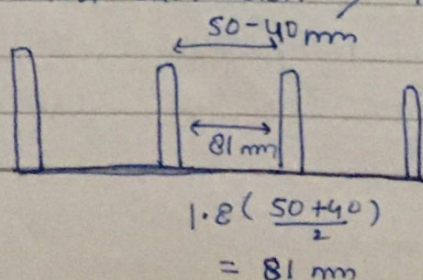 50-40 mm
81 mm
1.8 ( 50 + 40 / 2 )
= 81 mm